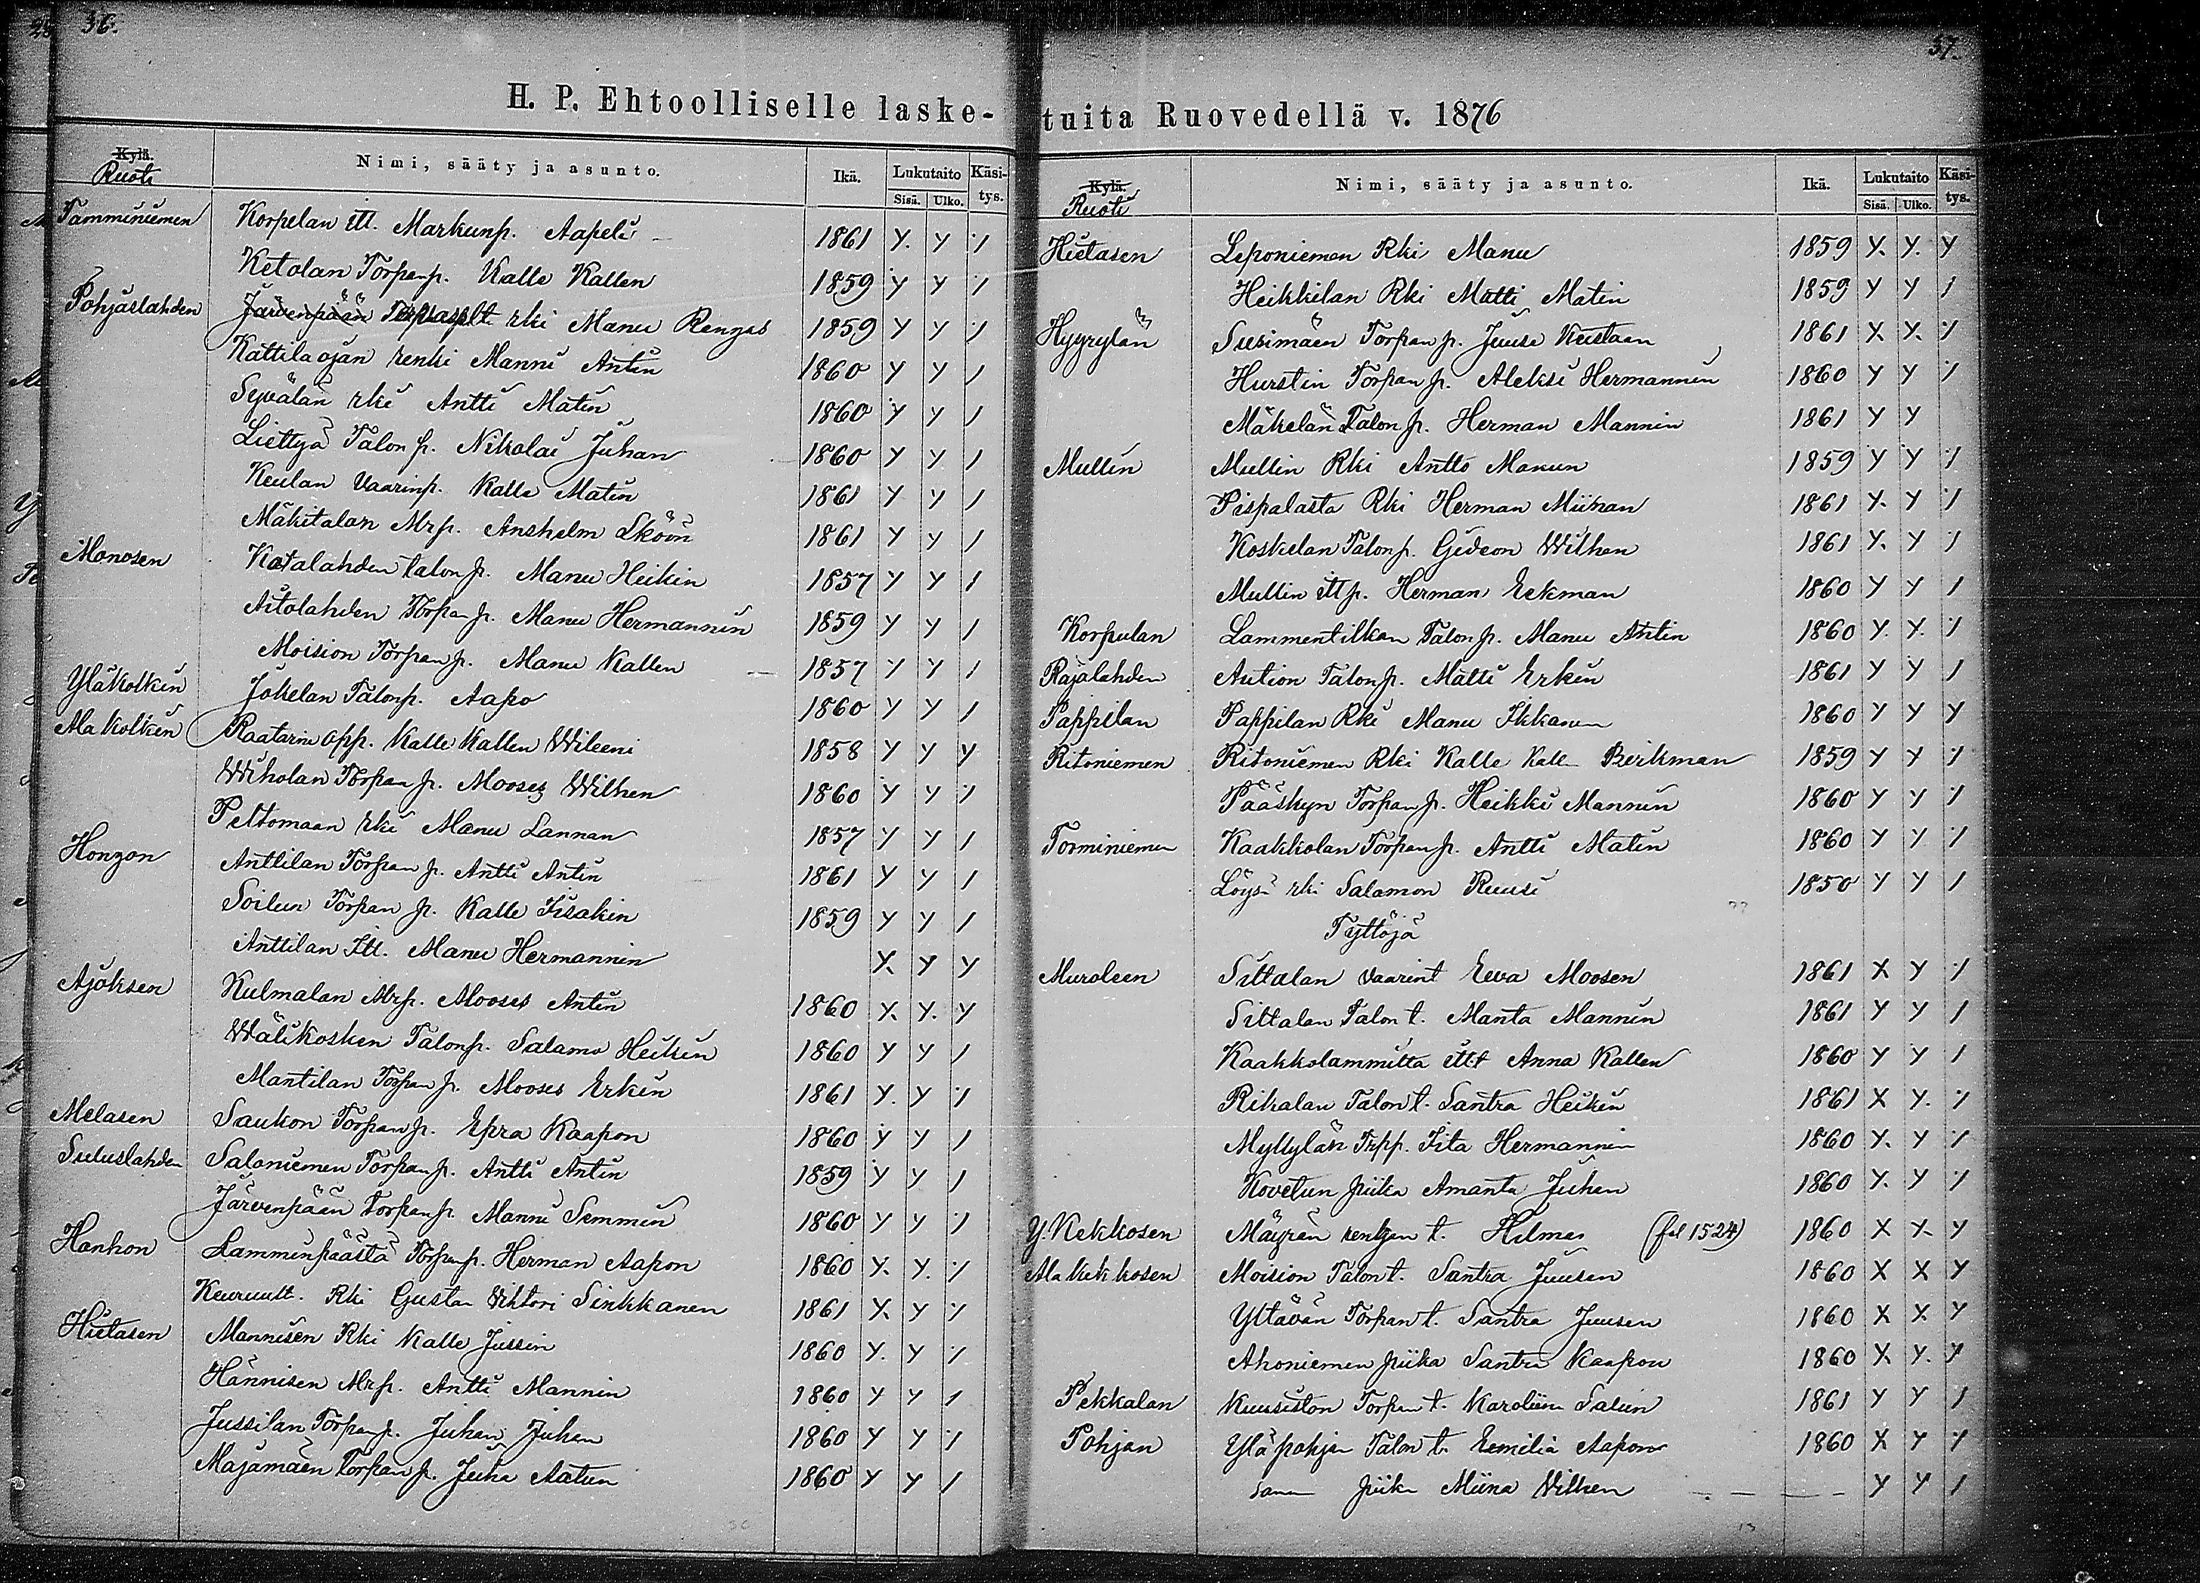 36.
H. P. Ehtoolliselle laske-
Kylä. Ruoti Nimi, sääty ja asunto. Ikä. Lukutaito Sisä. Ulko. Käsitys.
Tamminiemen Korpelan itl. Markunp. Aapeli 1861 Y. Y ⁒
Ketolan Torpanp. Kalle Kallen 1859 Y Y /
Pohjaslahden Järvenpään rki Manu Rengas 1859 Y Y ⁒
Kattilaojan renki Manni Antin 1860 Y Y /
Syvälän rki Antti Matin 1860 Y Y /
Liettyä Talon p. Nikolai Juhan 1860 Y Y /
Keulan Vaarinp. Kalle Matin 1861 Y Y /
Mäkitalon Mrp. Anshelm Sköön 1861 Y Y /
Monosen Katalahden talon p. Manu Heikin 1857 Y Y /
Aitolahden Torpan p. Manu Hermannin 1859 Y Y /
Moision Torpan p. Manu Kallen 1857 Y Y /
YläKolkin Jokelan Talonp. Aapo 1860 Y Y /
Ala Kolkin Raatarin opp. Kalle Kallen Wileeni 1858 Y Y Y
Wiholan Torpan p. Mooses Wilhen 1860 Y Y ⁒
Peltomaan rki Manu Lannan 1857 Y Y /
Honzon Anttilan Torpan p. Antti Antin 1861 Y Y /
Soilun Torpan p. Kalle Iisakin 1859 Y Y /
Anttilan Itl. Manu Hermannin X. Y Y
Ajoksen Kulmalan Mrp. Mooses Antin 1860 Y. Y. Y
Wälikosken Talonp. Salamo Heikin 1860 Y Y /
Mantilan Torpan p. Mooses Erkin 1861 Y. Y ⁒
Melasen Saukon Torpan p. Epra Kaapon 1860 Y Y /
Suluslahden Saloniemen Torpan p. Antti Antin 1859 Y Y /
Järvenpään Torpan p. Manni Semmin 1860 Y Y ⁒
Hanhon Lamminpäästä Torpanp. Herman Aapon 1860 Y. Y. ⁒
Keuruult. Rki Gustav Vihtori Sinkkanen 1861 X. Y ⁒
Hietasen Mannisen Rki Kalle Jussin 1860 Y. Y ⁒
Hännisen Mrp. Antti Mannin 1860 Y Y /
Jussilan Torpan p. Juhan Juhan 1860 Y Y ⁒
Majamäen Torpan p. Juha Aatun 1860 Y Y /
37.
tuita Ruovedellä v. 1876
Kylä. Ruoti Nimi, sääty ja asunto. Ikä. Lukutaito Sisä. Ulko. Käsitys.
Hietasen Leponiemen Rki Manu 1859 Y. Y. Y
Heikkilan Rki Matti Matin 1859 Y Y /
Hyyrylän Susimäen Torpan p. Juuse Kustaan 1861 X Y. ⁒
Hurstin Torpan p. Aleksi Hermannin 1860 Y Y ⁒
Mäkelän Talon p. Herman Mannin 1861 Y Y
Mullin Mullin Rki Antto Manun 1859 Y Y ⁒
Pispalasta Rki Herman Miinan 1861 Y. Y ⁒
Koskelan Talon p. Gideon Wilhen 1861 Y. Y ⁒
Mullin itl p. Herman Eekman 1860 Y Y /
Korpulan Lammentilkan Talon p. Manu Antin 1860 Y. Y. ⁒
Rajalahden Aution Talon p. Matti Erkin 1861 Y Y /
Pappilan Pappilan Rki Manu Ikkanen 1860 Y Y Y
Ritoniemen Ritoniemen Rki Kalle Kall Beirkman 1859 Y Y ⁒
Pääskyn Torpan p. Heikki Mannin 1860 Y Y ⁒
Torminiemen Kaakkolan Torpan p. Antti Matin 1860 Y Y ⁒
Löys rki Salamon Ruusi 1850 Y Y /
Tyttöjä
Muroleen Sittalan vaarint Eeva Moosen 1861 X Y ⁒
Sittalan Talon t. Manta Mannin 1861 Y Y /
Kaakkolammilta itl.t Anna Kallen 1860 Y Y /
Rikalan Talon t. Santra Heikin 1861 X Y. ⁒
Myllylän Trpp. Iita Hermannin 1860 Y. Y ⁒
Kovelun piika Amanta Juhan 1860 Y. Y ⁒
Y. Kekkosen Mäyrän rengin t. Hilma (fol 1524) 1860 X X Y
Ala kekkosen Moision Talon t. Santra Juusen 1860 X X Y
Yltävän Torpan t. Santra Juusen 1860 X X Y
Ahoniemen piika Santra Kaapon 1860 X Y. Y
Pekkalan Kuusiston Torpan t. Karoliina Salin 1861 Y Y /
Pohjan Yläpohjan Talon t. Eemilia Aapon 1860 X Y ⁒
Sama piika Miina Wilhen — — — Y Y /